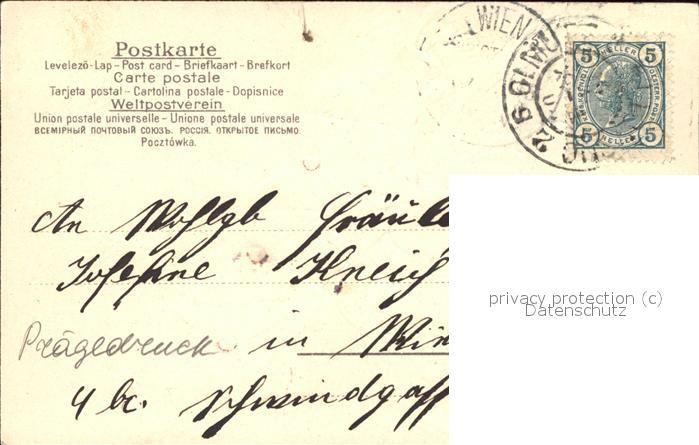 Postkarte
Levelező-Lap – Post card – Briefkaart – Brefkort
Carte postale
Tarjeta postal – Cartolina postale – Dopisnice
Weltpostverein
Union postale universelle – Unione postale universale
ВСЕМІРНЫЙ ПОЧТОВЫЙ СОЮЗЪ. РОССІЯ. ОТКРЫТОЕ ПИСЬМО.
Pocztówka.
WIEN
5 HELLER 5
5 HELLER 5
An Wohlgb Fräule
Josefine
Prägedruck in Wie
4 bz. Schwindgass
privacy protection (c)
Datenschutz